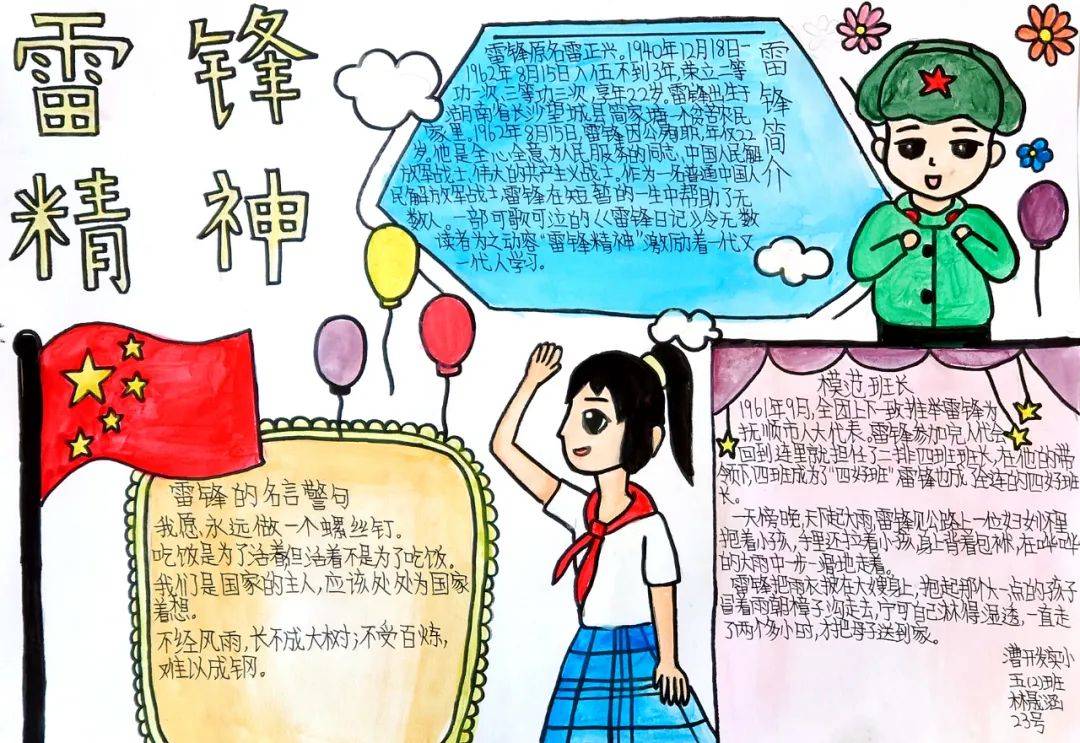 雷锋
精神
雷锋简介
雷锋原名雷正兴。1940年12月18日—
1962年8月15日入伍不到3年,荣立二等
功一次,三等功三次,享年22岁。雷锋出生于
湖南省长沙望城县简家塘一个贫苦农民
家里。1962年8月15日,雷锋因公殉职,年仅22
岁。他是全心全意为人民服务的同志,中国人民解
放军战士,伟大的共产主义战士,作为一名普通中国人
民解放军战士雷锋在短暂的一生中帮助了无
数人。一部可歌可泣的《《雷锋日记》令无数
读者为之动容“雷锋精神”激励着一代又
一代人学习。
雷锋的名言警句
我愿永远做一个螺丝钉。
吃饭是为了活着,但活着不是为了吃饭。
我们是国家的主人,应该处处为国家
着想。
不经风雨,长不成大树;不受百炼,
难以成钢。
模范班长
1961年9月,全团上下一致推举雷锋为
抚顺市人大代表。雷锋参加完人代会
回到连里就担任了二排四班班长,在他的带
领下,四班成为了“四好班”雷锋也成全连的四好班
长。
一天傍晚,天下起大雨,雷锋见公路上一位妇女怀里
抱着小孩,手里还拉着小孩,身上背着包袱,在哗哗
的大雨中一步一滑地走着。
雷锋把雨衣披在大嫂身上,抱起那个大一点的孩子
冒着雨朝樟子沟走去,宁可自己淋得湿透,一直走
了两个多小时,才把母子送到家。
漕开发实小
五(2)班
林晟涵
23号